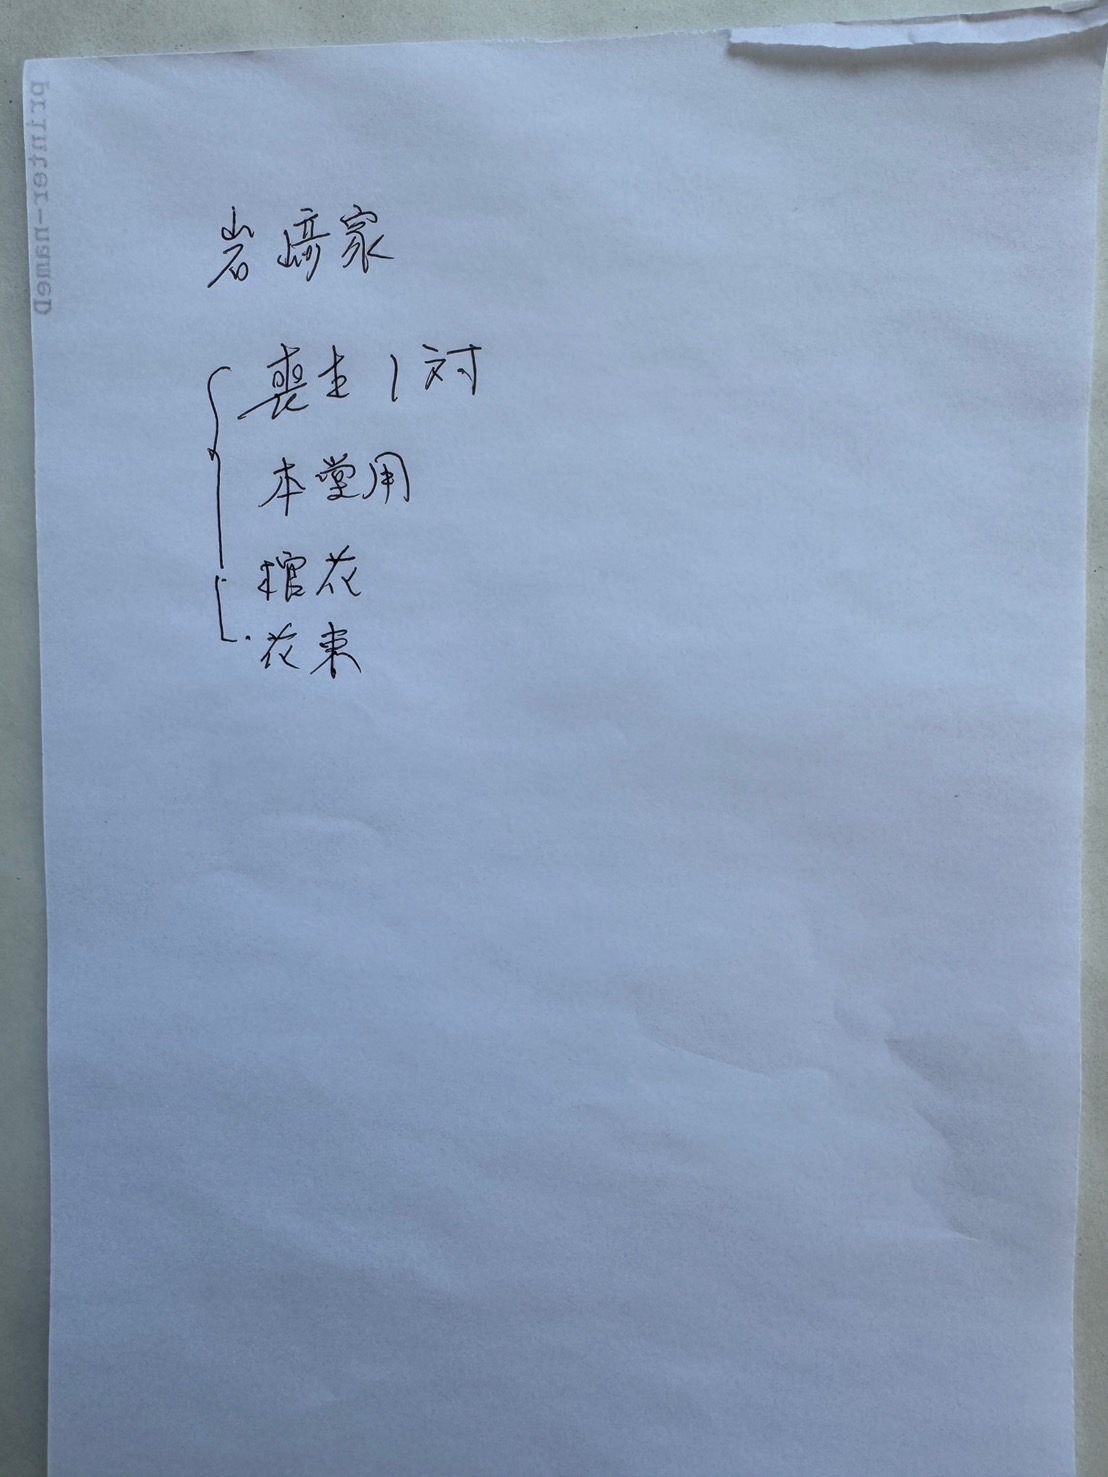 printer-nameD
岩﨑家
喪主1対
本堂用
棺花
花束